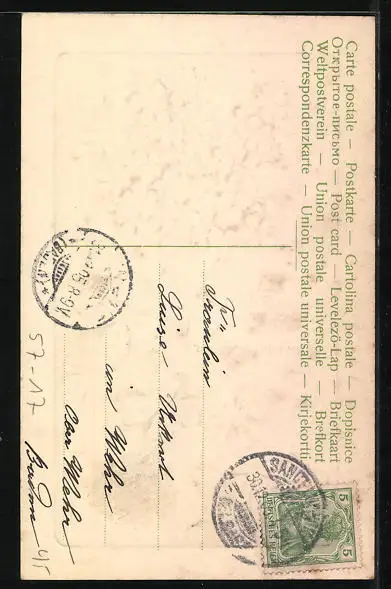 Carte postale — Postkarte — Cartolina postale — Dopisnice
Открытое-письмо — Post card — Levelezö-Lap — Briefkaart
Weltpostverein — Union postale universelle — Brefkort
Correspondenzkarte — Union postale universale — Kirjekortti
5 5
DEUTSCHES REICH
SANCT
Fräulein
Luise
in Wehr
Baden
57-17